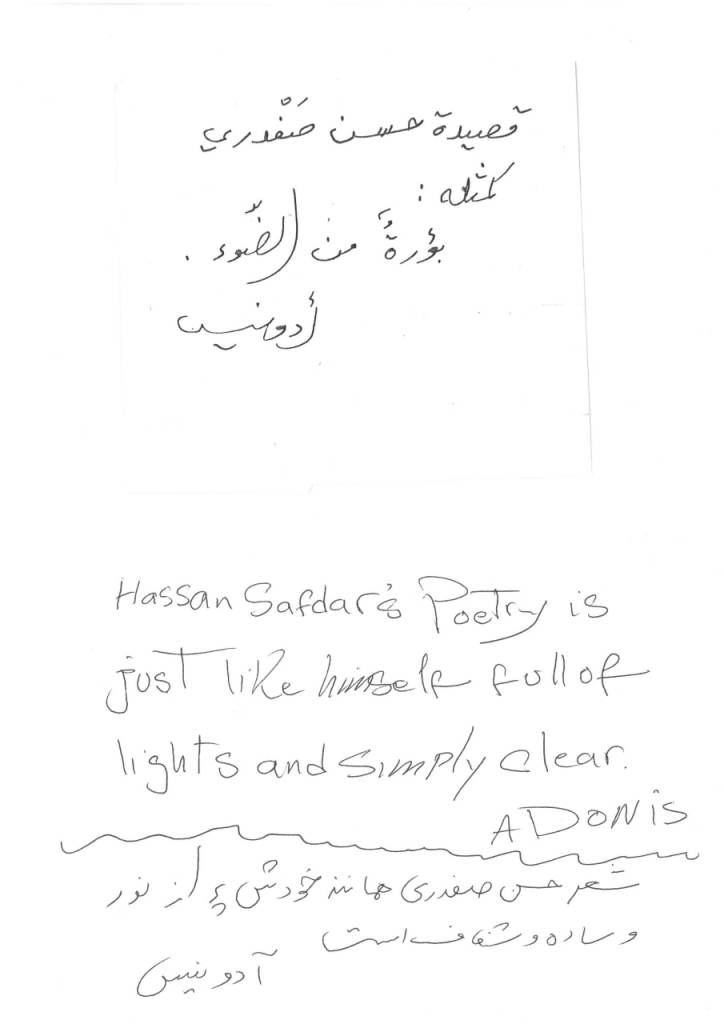 قصيدة حسن صَفْدري
كمثله :
بؤرةٌ من الضّوء .
أدونيس
Hassan Safdar's Poetry is
just like himself full of
lights and simply clear.
ADONIS
شعر حسن صفدری همانند خودش پر از نور
و ساده و شفاف است
آدونیس